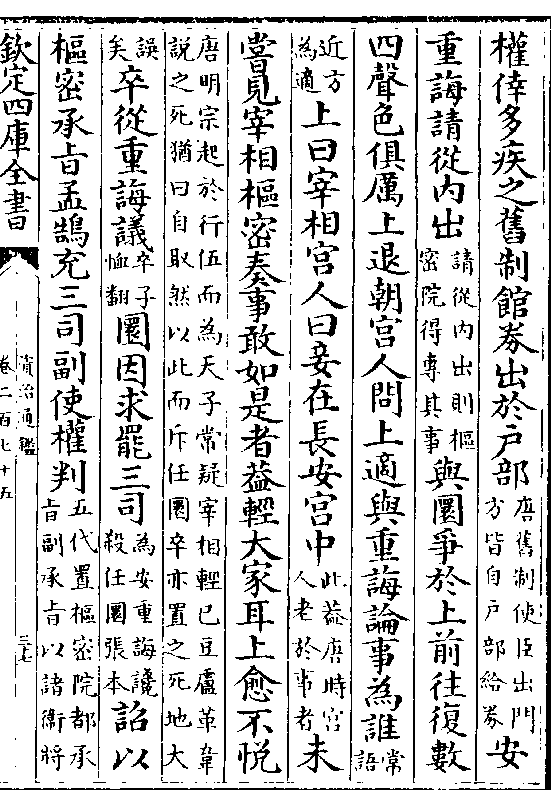 權倖多疾之舊制館劵出於戶部唐舊制使臣出四方皆自戶部給劵安
重誨請從内出請從内出則樞密院得專其事與圜爭於上前往復數
四聲色俱厲上退朝宫人問上適與重誨論事為誰常語
近方為適上曰宰相宫人曰妾在長安宫中此葢唐時宫人老於事者未
嘗見宰相樞密奏事敢如是者葢輕大家耳上愈不悦
唐明宗起於行伍而為天子常疑宰相輕已豆盧革韋說之死猶曰自取然以此而斥任圜卒亦置之死地大
誤矣卒從重誨議卒子恤翻圜因求罷三司為安重誨讒殺任圜張本詔以
樞密承㫖孟鵠充三司副使權判五代置樞密院都承㫖副承㫖以諸衛將
欽定四庫全書
資治通鑑
卷二百七十五
三十七